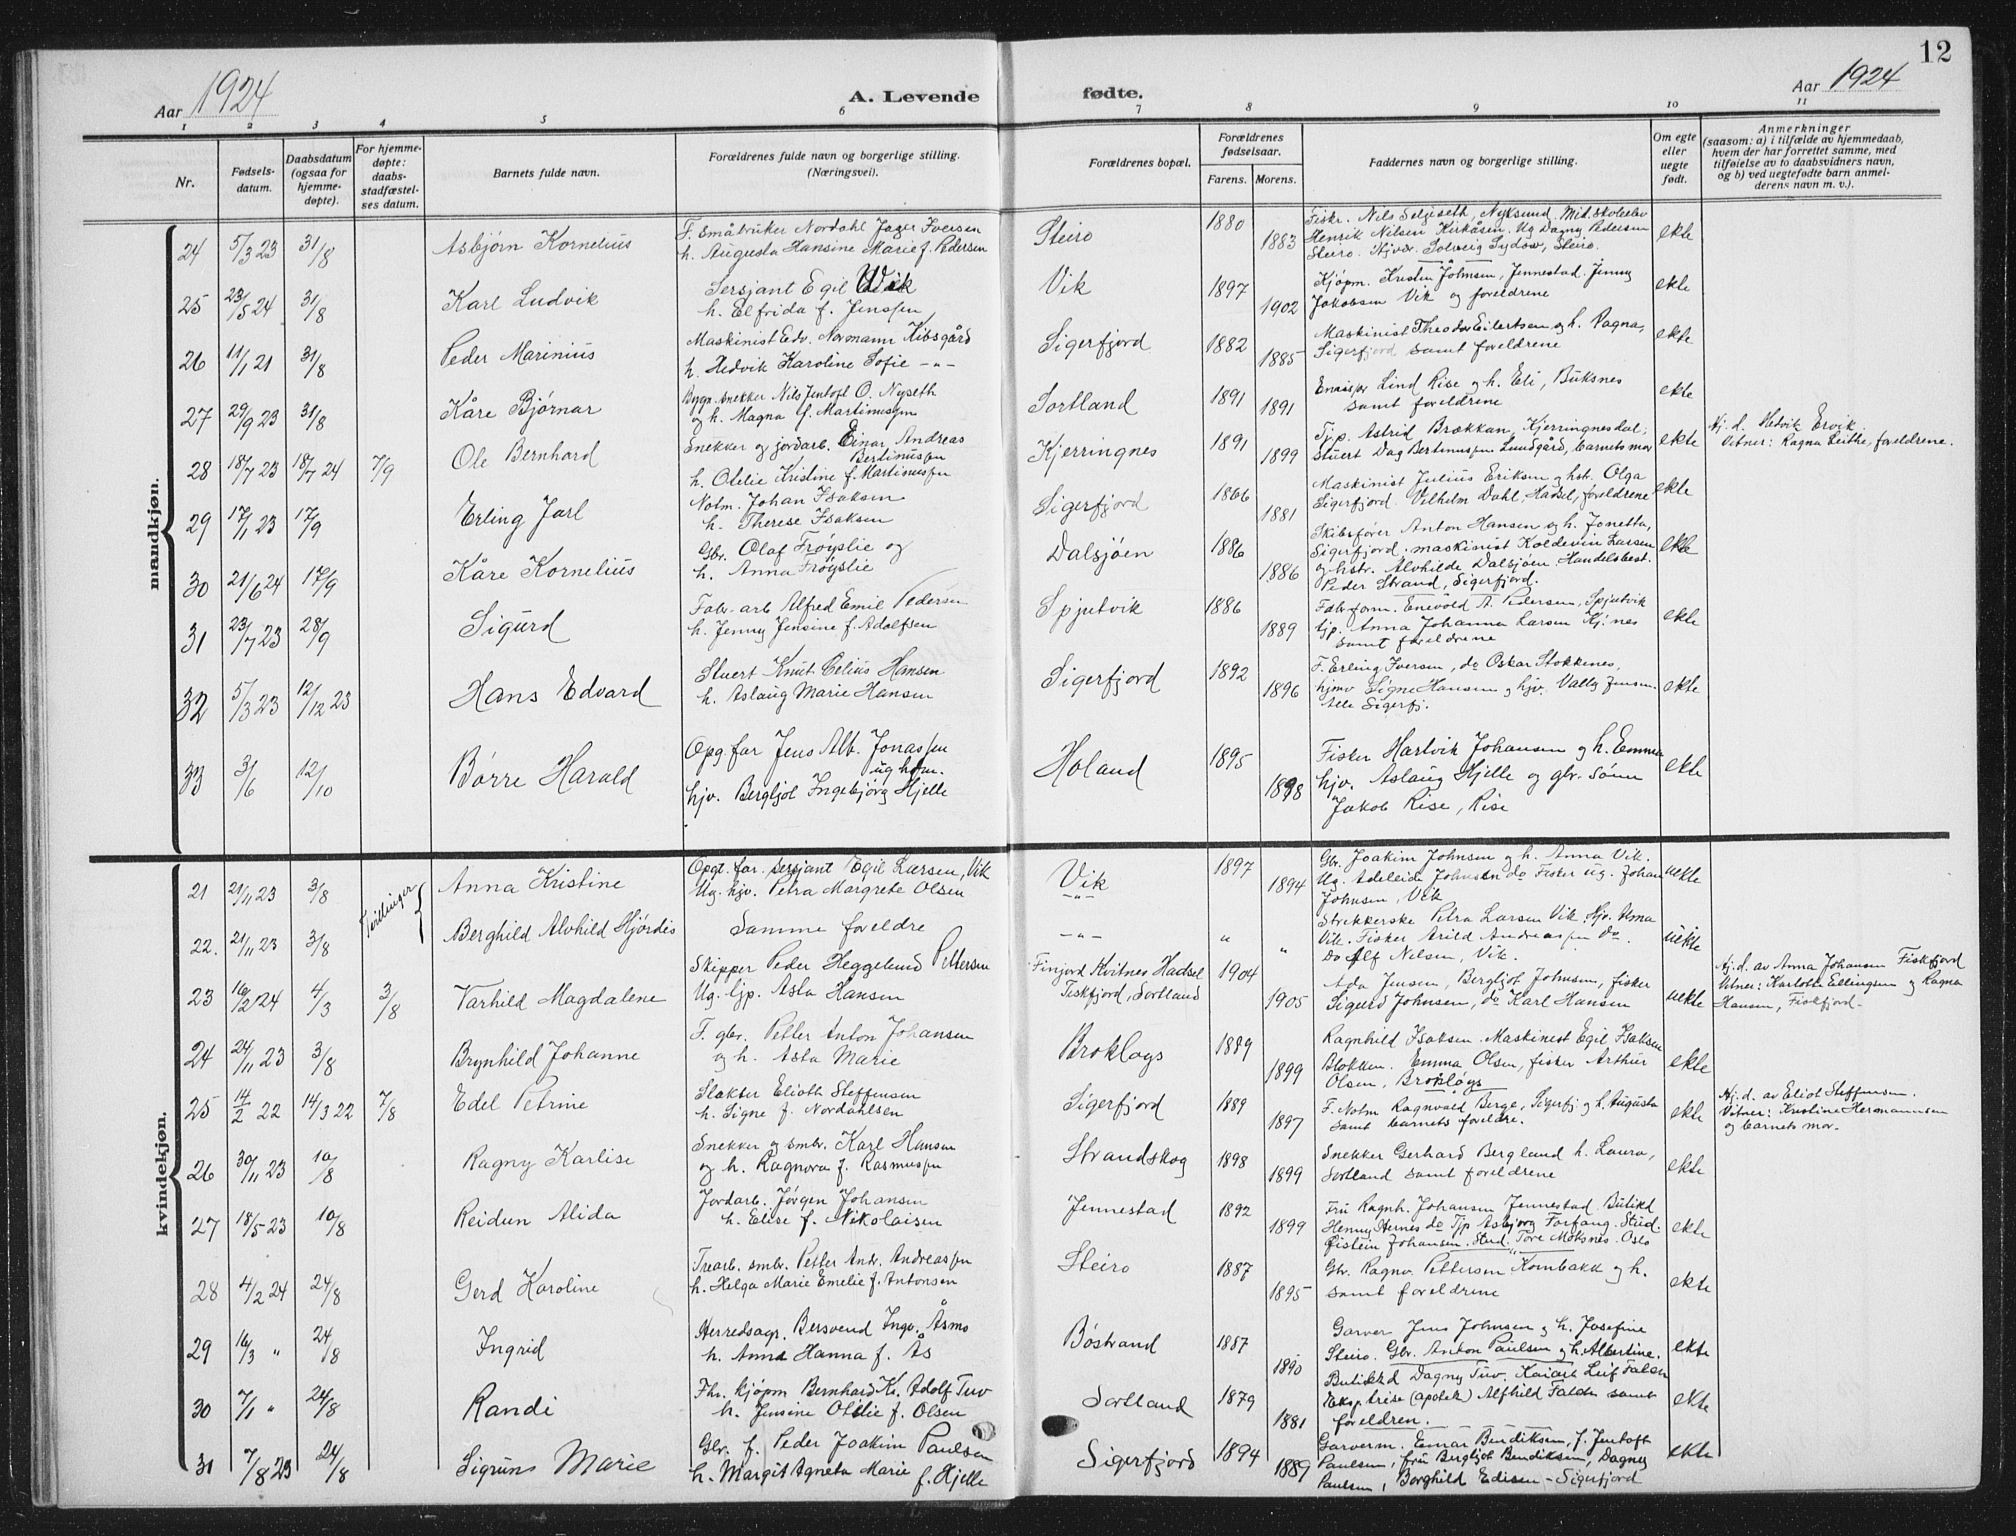 12
Aar 1924
A. Levende fødte.
Aar 1924
1 2 3 4 5 6 7 8 9 10 11
Nr.
Fødsels-
datum.
Daabsdatum
(ogsaa for
hjemme-
døpte).
For hjemme-
døpte:
daabs-
stadfæstel-
ses datum.
Barnets fulde navn.
Forældrenes fulde navn og borgerlige stilling.
(Næringsvei).
Forældrenes bopæl.
Forældrenes
fødselsaar.
Farens. Morens.
Faddernes navn og borgerlige stilling.
Om egte
eller
uegte
født.
Anmerkninger
(saasom: a) i tilfælde av hjemmedaab,
hvem der har forrettet samme, med
tilføielse av to daabsvidners navn,
og b) ved uegtefødte barn anmel-
derens navn m. v.).
mandkjøn.
24 5/3 23 31/8 Asbjørn Kornelius
F. Småbruker Nordahl Jager Iversen
h. Augusta Hansine Marie f. Pedersen
Steiro 1880 1883
Fiskr. Nils Selgiseth, Nyksund. Mid.skoleelev
Henrik Nilsen Kirkåsen. Ug. Dagny Pedersen
Steiro. Hjv. Solveig Sydow, Steiro.
ekte
25 23/5 24 31/8 Karl Ludvik
Sersjant Egil Wik
h. Elfrida f. Jenssen
Vik 1897 1902
Kjøpm. Kristen Johnsen, Jennestad. Jenny
Jakobsen Vik og foreldrene
ekte
26 11/1 21 31/8 Peder Marinius
Maskinist Edv. Normann Kibsgård
h. Hedvik Karoline Sofie -"-
Sigerfjord 1882 1885
Maskinist Theodor Eilertsen og h. Ragna,
Sigerfjord samt foreldrene
ekte
27 29/9 23 31/8 Kåre Bjørnar
Bygn.snekker Nils Jentoft O. Nyseth
og h. Magna f. Martinussen
Sortland 1891 1891
Lind Rise og h. Eli, Buksnes
samt foreldrene
ekte
28 18/7 23 18/7 24 7/9 Ole Bernhard
Snekker og jordarb. Einar Andreas
Bertinussen
h. Otelie Kristine f. Martinussen
Kjerringnes 1891 1899
Tjp. Astrid Brækkan, Kjerringnesdal,
Stuert Dag Bertinussen Lundgård, barnets mor
ekte
Hj.d. Hedvik Ervik.
Vitner: Ragna Leithe, foreldrene.
29 17/1 23 17/9 Erling Jarl
Notm. Johan Isaksen
h. Therese Isaksen
Sigerfjord 1866 1881
Maskinist Julius Eriksen og hst. Olga
Sigerfjord. Vilhelm Dahl, Hadsel, foreldrene
ekte
30 21/6 24 17/9 Kåre Kornelius
Gbr. Olaf Frøyslie og
h. Anna Frøyslie
Dalsjøen 1886 1886
Skibsfører Anton Hansen og h. Jonetta,
Sigerfjord. maskinist Koldevin Larsen
og hstr. Alvhilde Dalsjøen. Handelsbest.
Peder Strand, Sigerfjord.
ekte
31 23/7 23 28/9 Sigurd
Fabr-arb Alfred Emil Pedersen
h. Jenny Jensine f. Adolfsen
Spjutvik 1886 1889
Fabr.form. Enevold A. Pedersen, Spjutvik
tjp. Anna Johanna Larsen Kj.nes
samt foreldrene
ekte
32 5/3 23 12/12 23 Hans Edvard
Stuert Knut Celius Hansen
h. Aslaug Marie Hansen
Sigerfjord 1892 1896
F. Erling Iversen, do Oskar Stokkenes,
hjmv Signe Hansen og hjv. Valby Jensen.
Alle Sigerfj.
ekte
33 3/6 12/10 Børre Harald
Opg. far Jens Alb. Jonassen
ug hom.
hjv. Bergljot Ingebjørg Hjelle
Holand 1895 1898
Fisker Hartvik Johansen og h. Emma
hjv. Aslaug Hjelle og gbr. sønn
Jakob Rise, Rise
ekte
kvindekjøn.
21 21/11 23 3/8 Tvillinger Anna Kristine
Opgt. far. sersjant Egil Larsen, Vik
Ug. hjv. Petra Margrete Olsen
Vik -"- 1897 1894
Gbr. Joakim Johnsen og h. Anna Vik.
Ug. Adeleide Johnsen do Fisker ug. Johan
Johnsen, Vik
uekte
22. 21/11 23 3/8 Berghild Alvhild Hjørdis
Samme foreldre
-"- " "
Strekkerske Petra Larsen Vik. Hjv. Alma
Vik. Fisker Arild Andreassen do.
Do Alf Nilsen, Vik.
uekte
23 16/2 24 4/3 3/8 Varhild Magdalene
Skipper Peder Heggelund Pettersen
Ug. tjp. Asta Hansen
Finjord Kvitnes Hadsel
Fiskfjord, Sortland
1904 1905
Ada Jensen, Bergljot Johnsen, fisker
Sigurd Johnsen, do Karl Hansen
uekte
Hj.d. av Anna Johansen Fiskfjord
Vitner: Karlotte Ellingsen og Ragna
Hansen, Fiskfjord-
24 24/11 23 3/8 Brynhild Johanne
F. gbr. Petter Anton Johansen
og h. Asta Marie
Brokløys 1889 1899
Ragnhild Isaksen. Maskinest Egil Isaksen
Blokken. Emma Olsen, fisker Arthur
Olsen, Brokløys
ekte
25 14/2 22 14/3 22 7/8 Edel Petrine
Slakter Elioth Steffensen
h. Signe f. Nordahlsen
Sigerfjord 1889 1897
F. Notm Ragnvald Berge, Sigerfj og h. Augusta
samt barnets foreldre.
ekte
Hj.d. av Eliot Steffensen.
Vitner: Kristine Hermannsen
og barnets mor.
26 30/11 23 10/8 Ragny Karlise
Snekker og smbr. Karl Hansen
og h. Ragnora f. Rasmussen
Strandskog 1898 1899
Snekker Gerhard Berglund h. Laura,
Sortland samt foreldrene
ekte
27 18/5 23 10/8 Reidun Alida
Jordarb. Jørgen Johansen
h. Elise f. Nikolaisen
Jennestad 1892 1899
Fru Ragnh. Johansen Jennestad. Butikd
Henny Hernes do Tjp Asbjørg Forfang. Stud.
Øistein Johansen. Stud. Tore Moksnes. Oslo
ekte
28 4/2 24 24/8 Gerd Karoline
Trearb. smbr. Petter Andr. Andreassen
h. Helga Marie Emelie f. Antonsen
Steiro 1887 1895
Gbr. Ragnv. Pettersen Kombakk og h.
samt foreldrene
ekte
29 16/3 " 24/8 Ingrid
Herredsagr. Bersvend Ingv. Åsmo
h. Anna Hanna f. Ås
Bøstrand 1887 1890
Garver Jens Johnsen og h. Josefine
Steiro. Gbr. Anton Paulsen og h. Albertine.
ekte
30 7/1 " 24/8 Randi
Fhv. kjøpm Bernhard K. Adolf Tuv
h. Jensine Otilie f. Olsen
Sortland 1879 1881
Butikkd Dagny Tuv. Leif Falch
Eksptrise (apotek) Alfhild Falch samt
foreldren.
ekte
31 7/8 23 24/8 Sigruns Marie
Gbr. f. Peder Joakim Paulsen
h. Margit Agneta Marie f. Hjelle
Sigerfjord 1894 1889
Garverm. Einar Bendiksen, f. Jentoft
Paulsen, fru Bergljot Bendiksen, Dagny
Paulsen, Borghild Edisen - Sigerfjord
ekte